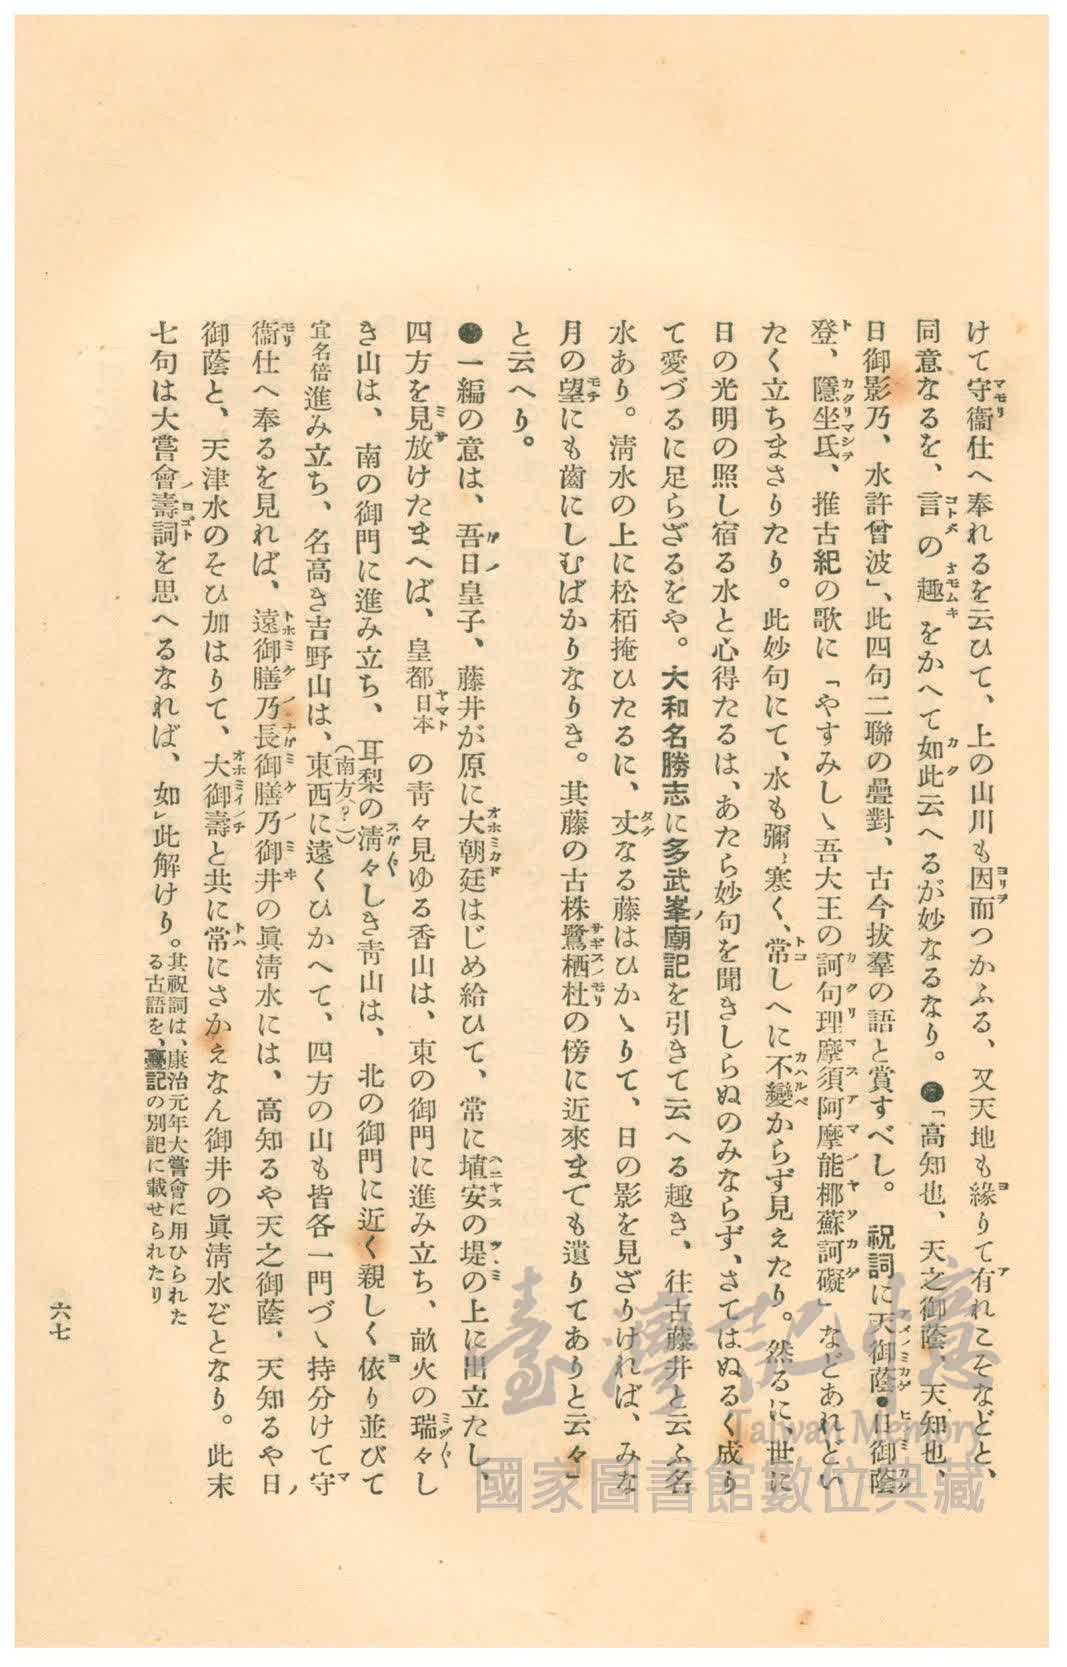 けて守衞仕へ奉れるを云ひて、上の山川も因而つかふる、又天地も緣りて有れこそなどと、
同意なるを、言の趣をかへて如此云へるが妙なるなり。●「高知也、天之御蔭、天知也、
日御影乃、水許曾波」、此四句二聯の疊對、古今拔羣の語と賞すべし。祝詞に天御蔭●日御蔭
登、隱坐氐、推古紀の歌に「やすみしゝ吾大王の訶句理摩須阿摩能椰蘇訶礙」などあれどい
たく立ちまさりたり。此妙句にて、水も彌寒く、常しへに不變からず見えたり。然るに、世に
日の光明の照し宿る水と心得たるは、あたら妙句を聞きしらぬのみならず、さてはぬるく成り
て愛づるに足らざるをや。大和名勝志に多武峯廟記を引きて云へる趣き、往古藤井と云ふ名
水あり。淸水の上に松栢掩ひたるに、丈なる藤はひかゝりて、日の影を見ざりければ、みな
月の望にも齒にしむばかりなりき。其藤の古株鷺栖杜の傍に近來までも遺りてありと云々」
と云へり。
●一編の意は、吾日皇子、藤井が原に大朝廷はじめ給ひて、常に埴安の堤の上に出立たし、
四方を見放けたまへば、皇都日本の靑々見ゆる香山は、東の御門に進み立ち、畝火の瑞々し
き山は、南の御門に進み立ち、耳梨の淸々しき靑山は、北の御門に近く親しく依り並びて
(南方(?))
宜名倍進み立ち、名高き吉野山は、東西に遠くひかへて、四方の山も皆各一門づゝ持分けて守
衞仕へ奉るを見れば、遠御膳乃長御膳乃御井の眞淸水には、高知るや天之御蔭、天知るや日
御蔭と、天津水のそひ加はりて、大御壽と共に常にさかえなん御井の眞淸水ぞとなり。此末
七句は大嘗會壽詞を思へるなれば、如此解けり。其祝詞は、康治元年大嘗會に用ひられた
る古語を、臺記の別記に載せられたり
六七
臺灣記憶
Taiwan Memory
國家圖書館數位典藏